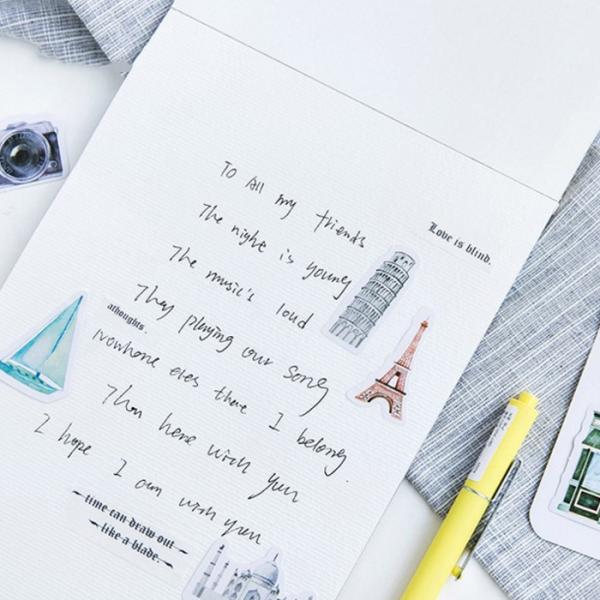 To All my friends
Love is blind.
The night is young
The music's loud
They playing our song
athoughts.
Nowhone eves there I belong.
Than here with you
I hope I am with you
time can draw out
like a blade.